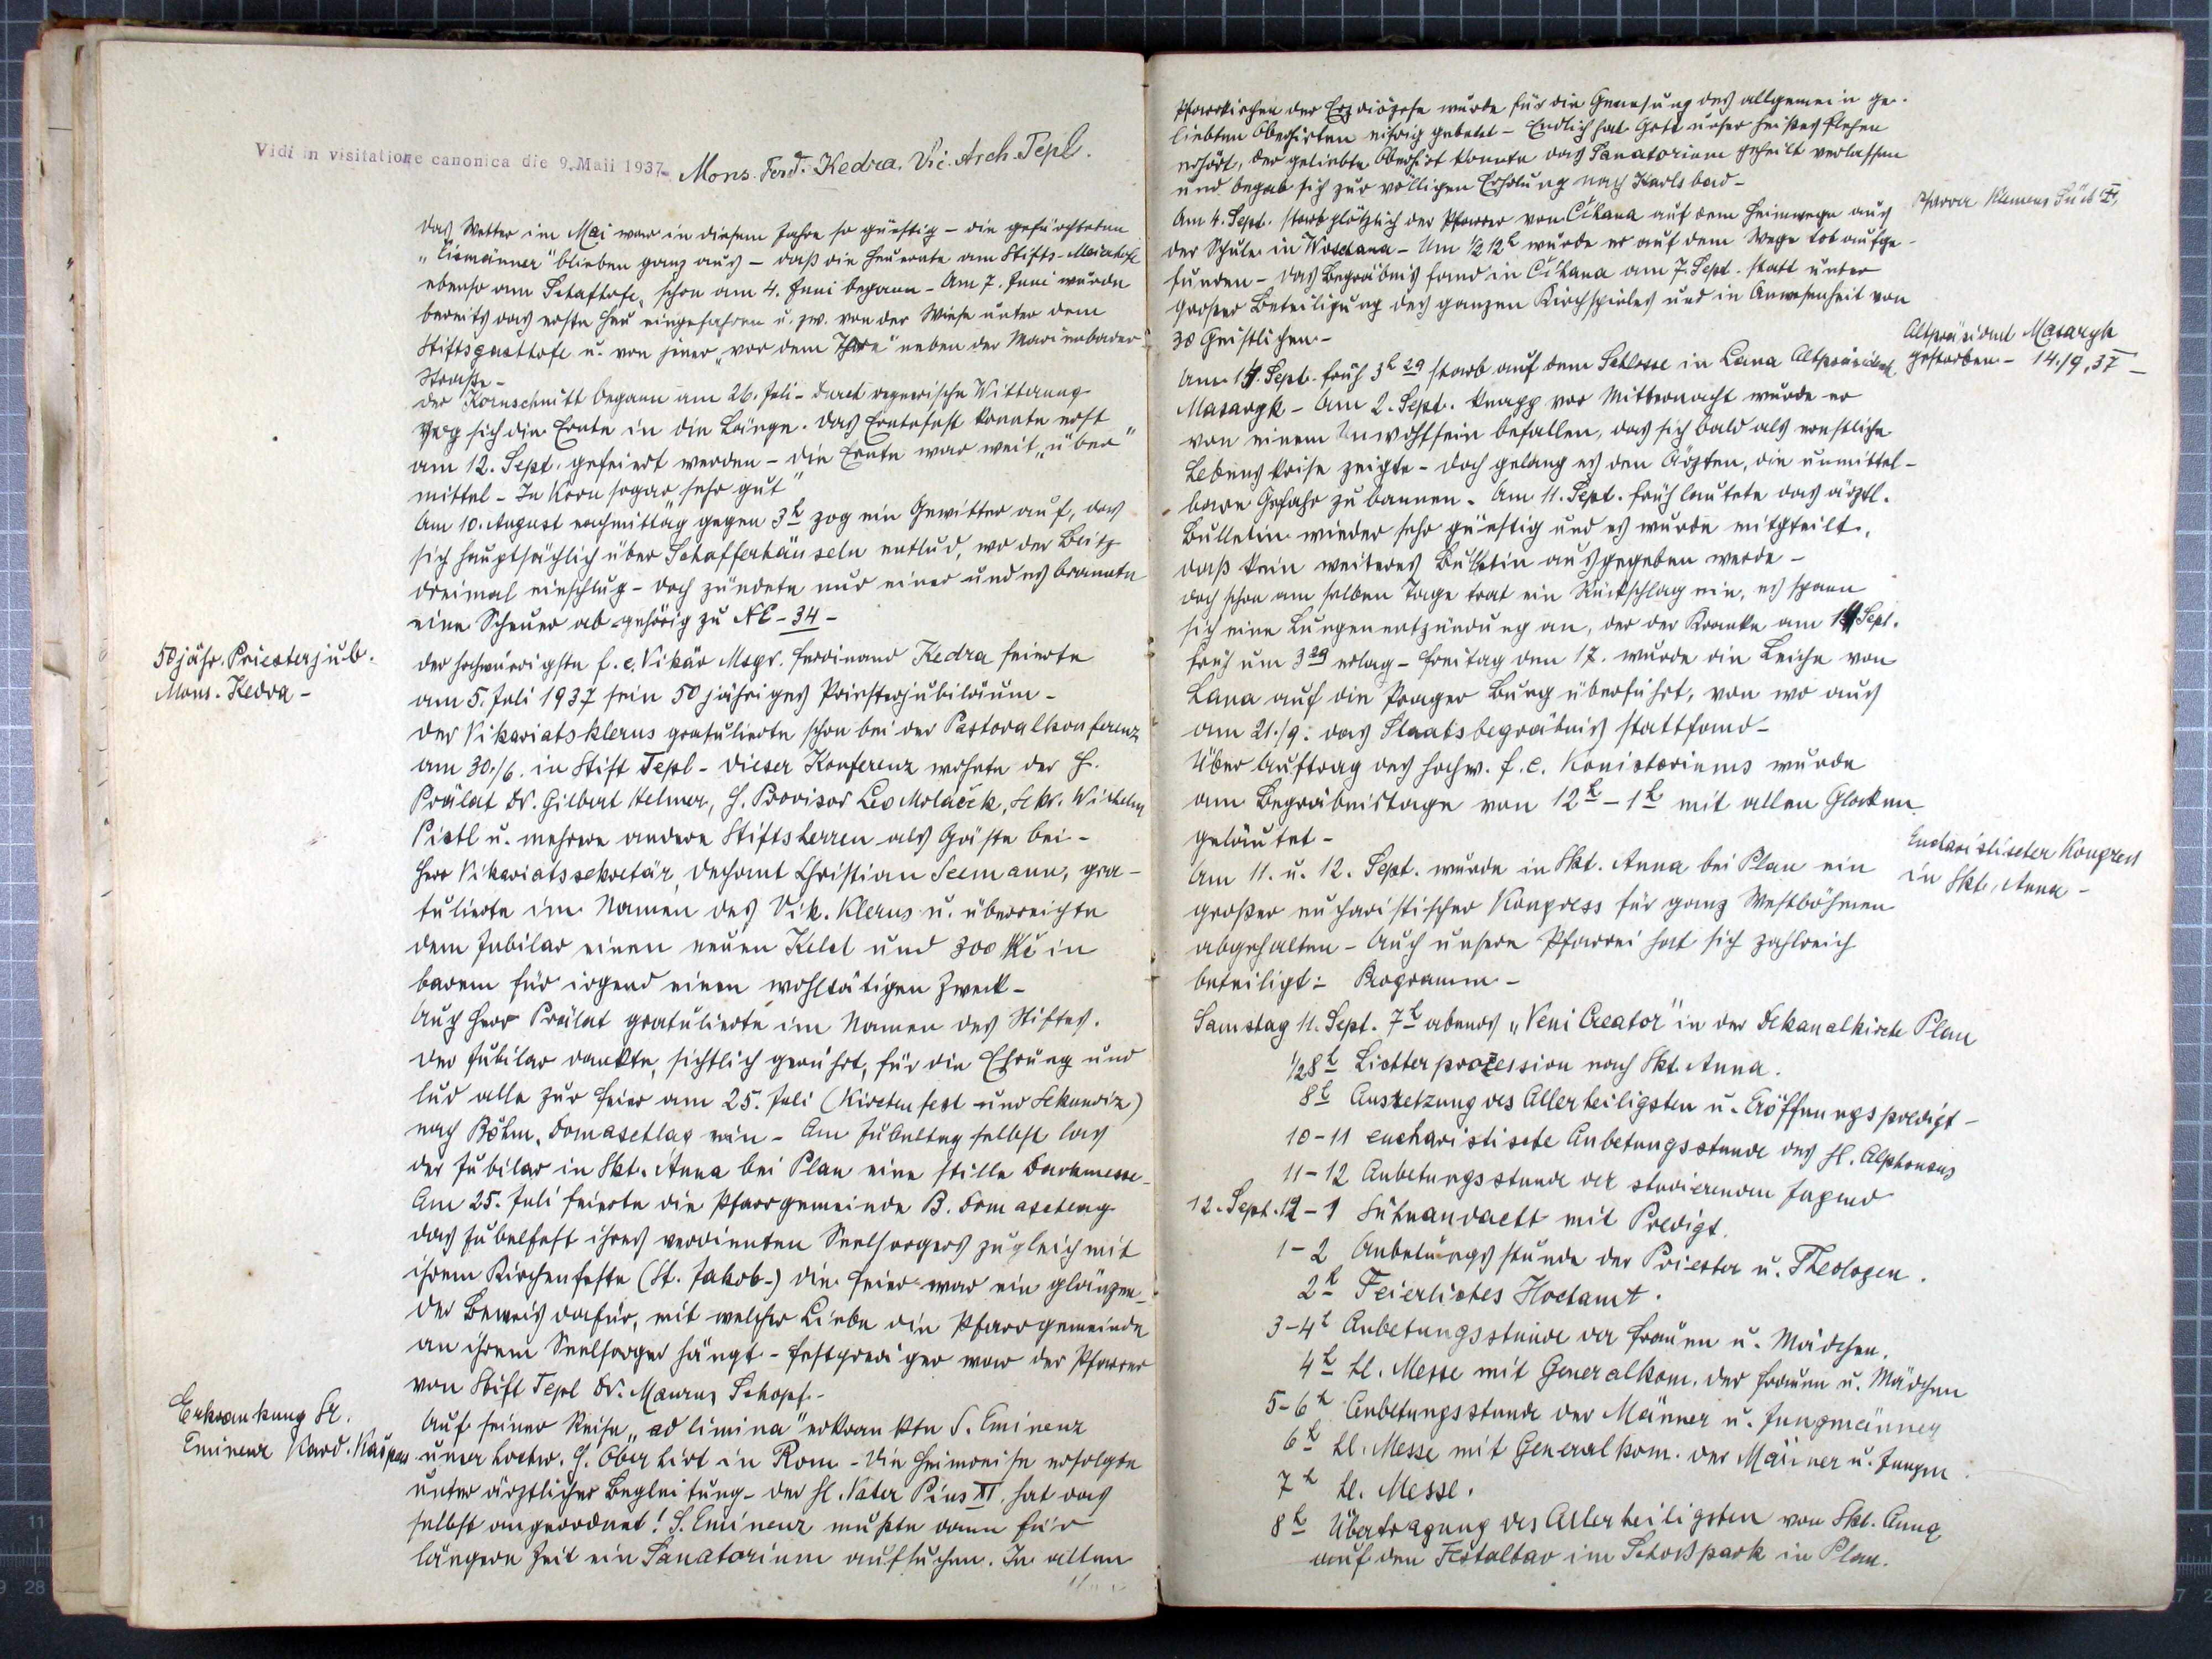 Vidi in visitatione canonica die 9. Maii 1937. Mons. Ferd. Kedra, Vic. Arch. Tepl.
Das Wetter im Mai war in diesem Jahre so günstig – die gefürchteten
„Eismänner" blieben ganz aus – daß die Heuernte am Stifts-Maierhofe
ebenso am Schafhofe, schon am 4. Juni begann – Am 7. Juni wurde
bereits das erste Heu eingefahren u. zw. von der Wiese unter dem
Stiftsgasthofe u. von jener „vor dem Thore" neben der Marienbader
Straße –
Der Kornschnitt begann am 26. Juli – Durch regnerische Witterung
zog sich die Ernte in die Länge. Das Erntefest konnte erst
am 12. Sept. gefeiert werden – die Ernte war weit „über"
mittel – In Korn sogar „sehr gut"
Am 10. August nachmittag gegen 3h zog ein Gewitter auf, das
sich hauptsächlich über Schafferhäuseln entlud, wo der Blitz
dreimal einschlug – doch zündete nur einer und es brannte
eine Scheuer ab gehörig zu NC – 34 –
50 jähr. Priesterjub.
Mons. Kedra –
Der hochwürdigste f. e. Vikär Msgr. Ferdinand Kedra feierte
am 5. Juli 1937 sein 50 jähriges Priesterjubiläum –
Der Vikariatsklerus gratulierte schon bei der Pastoralkonferenz
am 30./6. in Stift Tepl – Dieser Konferenz wohnte der H.
Prälat Dr. Gilbert Helmer, H. Provisor Leo Molaček, Sekr. Wilhelm
Pistl u. mehrere andere Stiftsherren als Gäste bei –
Herr Vikariatssekretär, Dechant Christian Seemann, gra-
tulierte im Namen des Vik. Klerus u. überreichte
dem Jubilar einen neuen Kelch und 300 Kč in
barem für irgend einen wohltätigen Zweck –
Auch Herr Prälat gratulierte im Namen des Stiftes.
Der Jubilar dankte, sichtlich gerührt, für die Ehrung und
lud alle zur Feier am 25. Juli (Kirchenfest und Sekundiz)
nach Böhm. Domaschlag ein – Am Jubeltag selbst las
der Jubilar in Skt. Anna bei Plan eine stille Dankmesse –
Am 25. Juli feierte die Pfarrgemeinde B. Domaschlag
das Jubelfest ihres verdienten Seelsorgers zugleich mit
ihrem Kirchenfeste (St. Jakob –) Die Feier war ein glänzen-
der Beweis dafür, mit welcher Liebe die Pfarrgemeinde
an ihrem Seelsorger hängt – Festprediger war der Pfarrer
von Stift Tepl Dr. Maurus Schopf –
Erkrankung Sr.
Eminenz Kard. Kašpar
Auf seiner Reise „ad limina" erkrankte S. Eminenz
unser hochw. H. Oberhirt in Rom – Die Heimreise erfolgte
unter ärztlicher Begleitung – der hl. Vater Pius XI. hat das
selbst angeordnet! S. Eminenz mußte dann für
längere Zeit ein Sanatorium aufsuchen. In allen
Pfarrkirchen der Erzdiözese wurde für die Genesung des allgemein ge-
liebten Oberhirten eifrig gebetet – Endlich hat Gott unser heißes Flehen
erhört, der geliebte Oberhirt konnte das Sanatorium geheilt verlassen
und begab sich zur völligen Erholung nach Karlsbad –
Pfarrer Klemens
Am 4. Sept. starb plötzlich der Pfarrer von Čihana auf dem Heimwege aus
der Schule in Woschana – Um 1/2 12h wurde er auf dem Wege tot aufge-
funden – Das Begräbnis fand in Čihana am 7. Sept. statt unter
großer Beteiligung des ganzen Kirchspieles und in Anwesenheit von
30 Geistlichen –
Altpräsident Masaryk
gestorben – 14./9. 37 –
Am 14. Sept. früh 3h 29 starb auf dem Schlosse in Lana Altpräsident
Masaryk – Am 2. Sept. knapp vor Mitternacht wurde er
von einem Unwohlsein befallen, das sich bald als ernstliche
Lebenskrise zeigte – doch gelang es den Ärzten, die unmittel-
bare Gefahr zu bannen – Am 11. Sept. früh lautete das ärztl.
Bulletin wieder sehr günstig und es wurde mitgeteilt,
daß kein weiteres Bulletin ausgegeben werde –
doch schon am selben Tage trat ein Rückschlag ein, es spann
sich eine Lungenentzündung an, der der Kranke am 14 Sept.
früh um 3 29 erlag – Freitag den 17. wurde die Leiche von
Lana auf die Prager Burg überführt, von wo aus
am 21./9. das Staatsbegräbnis stattfand –
Über Auftrag des hochw. f. e. Konistoriums wurde
am Begräbnistage von 12h – 1h mit allen Glocken
geläutet –
Eucharistischer Kongress
in Skt. Anna –
Am 11. u. 12. Sept. wurde in Skt. Anna bei Plan ein
großer eucharistischer Kongress für ganz Westböhmen
abgehalten – Auch unsere Pfarrei hat sich zahlreich
beteiligt – Programm –
Samstag 11. Sept. 7h abends „Veni Creator" in der Dekanalkirche Plan
1/2 8h Lichterprozession nach Skt. Anna.
8h Aussetzung des Allerheiligsten u. Eröffnungspredigt –
10–11 eucharistische Anbetungsstunde des hl. Alphonsus
11–12 Anbetungsstunde der studierenden Jugend
12. Sept. 12–1 Sühnandacht mit Predigt.
1–2 Anbetungsstunde der Priester u. Theologen.
2h Feierliches Hochamt.
3–4h Anbetungsstunde der Frauen u. Mädchen.
4h hl. Messe mit Generalkom. der Frauen u. Mädchen
5–6h Anbetungsstunde der Männer u. Jungmänner
6h hl. Messe mit Generalkom. der Männer u. Jungm.
7h hl. Messe.
8h Übertragung des Allerheiligsten von Skt. Anna
auf den Festaltar im Schoßpark in Plan.